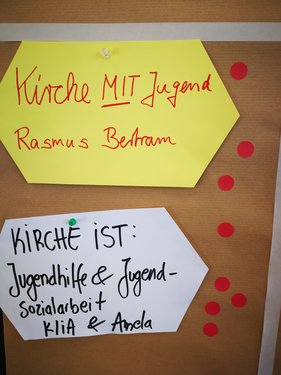 Kirche MIT Jugend
Rasmus Bertram
KiRCHE iST:
Jugendhilfe & Jugend-
Sozialarbeit
KliA & Amela